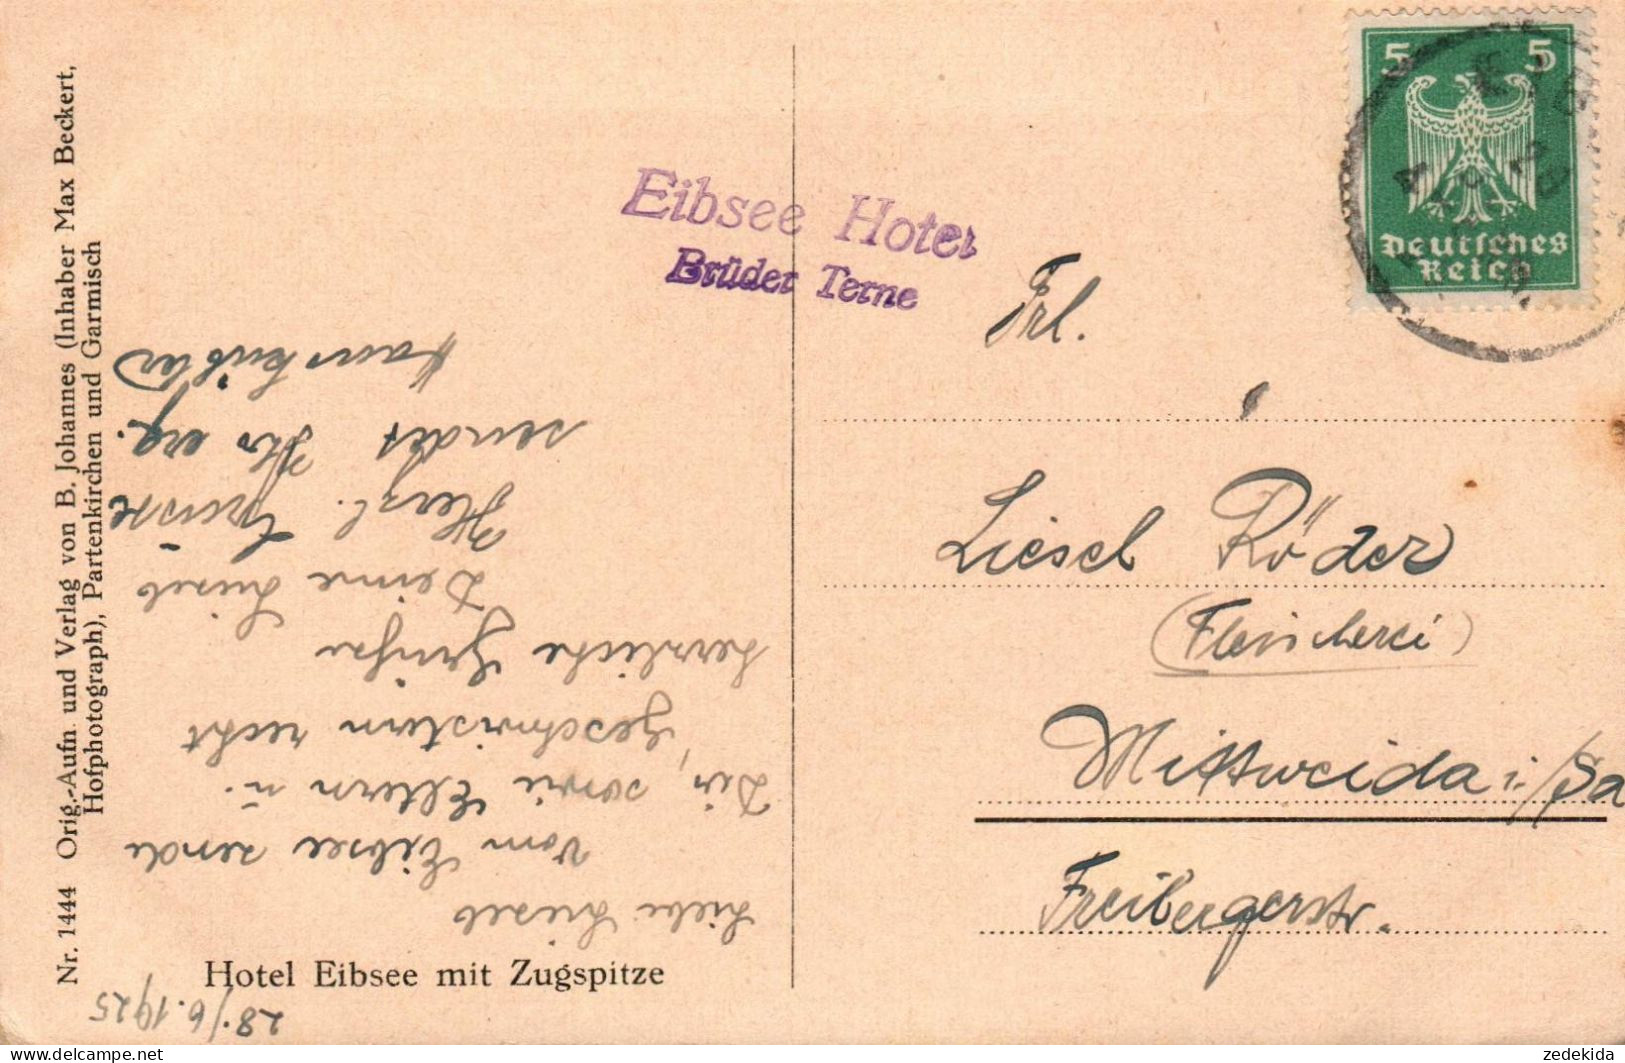 Nr. 1444 Orig.-Aufn. und Verlag von B. Johannes (Inhaber Max Beckert,
Hofphotograph), Partenkirchen und Garmisch
28./6.1925
Liebe Liesel
Vom Eibsee sende
Dir, sowie Eltern u.
Geschwistern recht
herzliche Grüße
Deine Liesel
Herzl. Grüsse
sendet Ihr erg.
Hotel Eibsee mit Zugspitze
Eibsee Hotel
Brüder Terne
5 5
Deutsches
Reich
Frl.
Liesel Röder
(Fleischerei)
Mittweida i./Sa
Freibergerstr.
zedekida